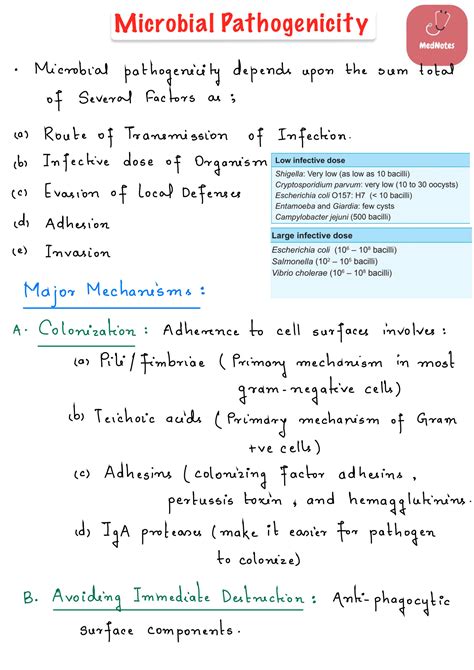 Microbial Pathogenicity
MedNotes
• Microbial pathogenicity depends upon the sum total
of Several Factors as ;
(a) Route of Transmission of Infection.
(b) Infective dose of Organism
(c) Evasion of Local Defenses
(d) Adhesion
(e) Invasion
Low infective dose
Shigella: Very low (as low as 10 bacilli)
Cryptosporidium parvum: very low (10 to 30 oocysts)
Escherichia coli O157: H7 (< 10 bacilli)
Entamoeba and Giardia: few cysts
Campylobacter jejuni (500 bacilli)
Large infective dose
Escherichia coli (10⁶ – 10⁸ bacilli)
Salmonella (10² – 10⁵ bacilli)
Vibrio cholerae (10⁶ – 10⁸ bacilli)
Major Mechanisms :
A. Colonization : Adherence to cell surfaces involves :
(a) Pili/fimbriae ( Primary mechanism in most
gram-negative cells)
(b) Teichoic acids ( Primary mechanism of Gram
+ve cells)
(c) Adhesins ( colonizing factor adhesins ,
pertussis toxin , and hemagglutinins.
(d) IgA proteases (make it easier for pathogen
to colonize)
B. Avoiding Immediate Destruction : Anti-phagocytic
surface components.